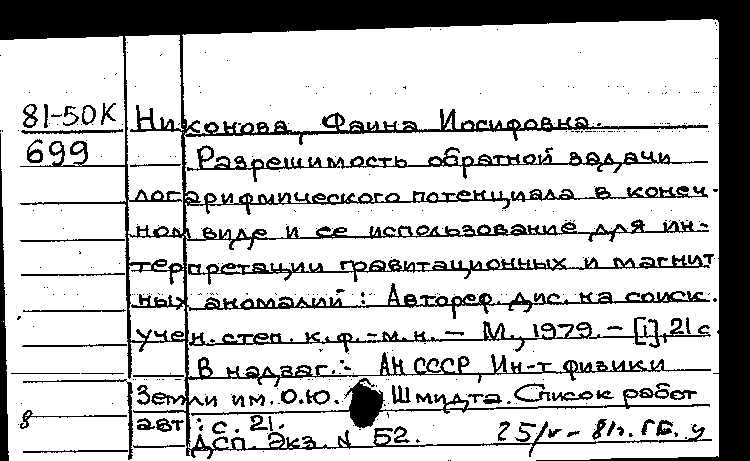 81-50К Никонова, Фаина Иосифовна.
699 Разрешимость обратной задачи
логарифмического потенциала в конеч-
ном виде и ее использование для ин-
терпретации гравитационных и магнит
ных аномалий : Автореф. дис. на соиск.
учен. степ. к. ф.-м. н. — М., 1979. — [1], 21 с.
В надзаг.: АН СССР, Ин-т физики
Земли им. О.Ю. Шмидта. Список работ
8 авт.: с. 21.
ДСП. Экз. N 52. 25/V - 81г. ГБ.